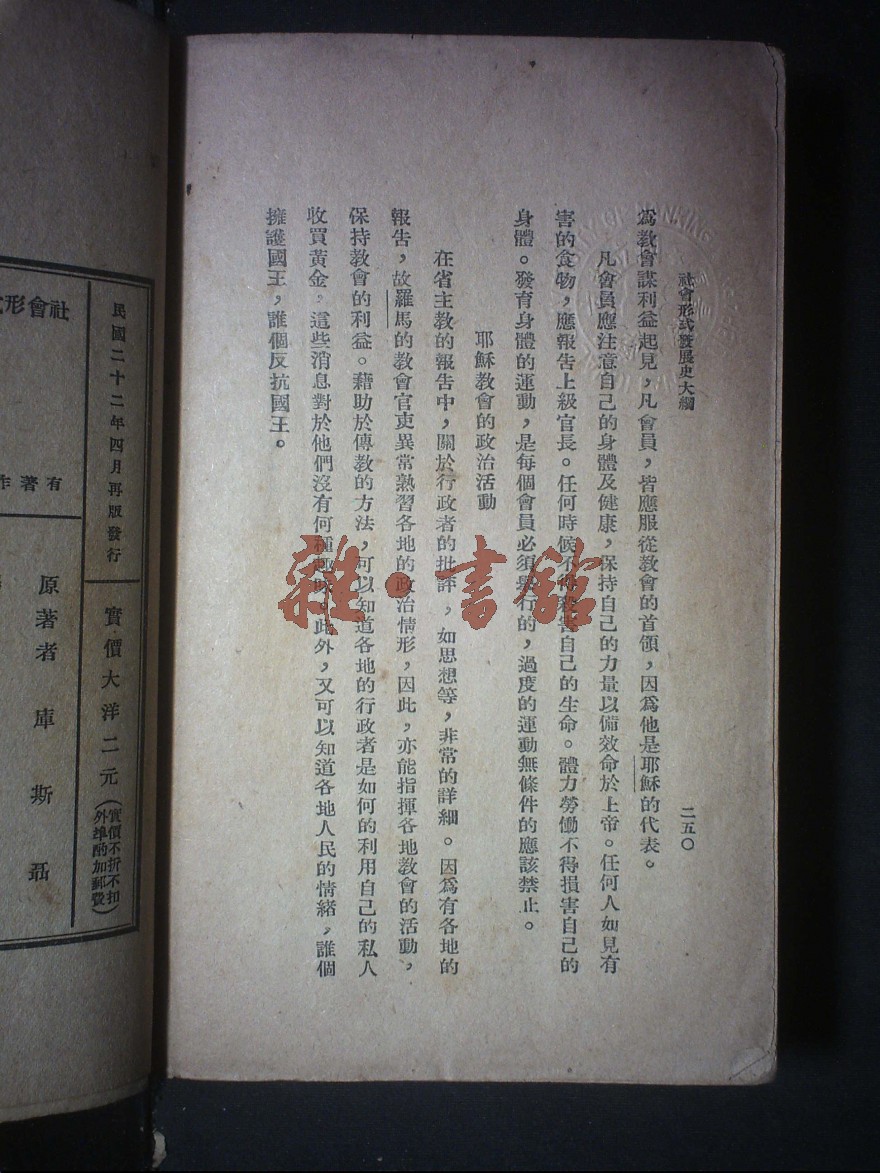 社會形式發展史大綱
二五〇
爲教會謀利益起見，凡會員，皆應服從教會的首領，因爲他是耶穌的代表。
凡會員應注意自己的身體及健康，保持自己的力量以備效命於上帝。任何人如見有
害的食物，應報告上級官長。任何時候不得殺害自己的生命。體力勞働不得損害自己的
身體。發育身體的運動，是每個會員必須舉行的，過度的運動無條件的應該禁止。
耶穌教會的政治活動
在省主教的報告中，關於行政者的批評，如思想等，非常的詳細。因爲有各地的
報告，故羅馬的教會官吏異常熟習各地的政治情形，因此，亦能指揮各地教會的活動，
保持教會的利益。藉助於傳教的方法，可以知道各地的行政者是如何的利用自己的私人
收買黃金。這些消息對於他們沒有何種趣味。此外，又可以知道各地人民的情緒，誰個
擁護國王，誰個反抗國王。
雜·書館
社會形式
有著作
民國二十二年四月再版發行
實價大洋二元
（實價不折不扣
外埠酌加郵費）
原著者 庫斯聶